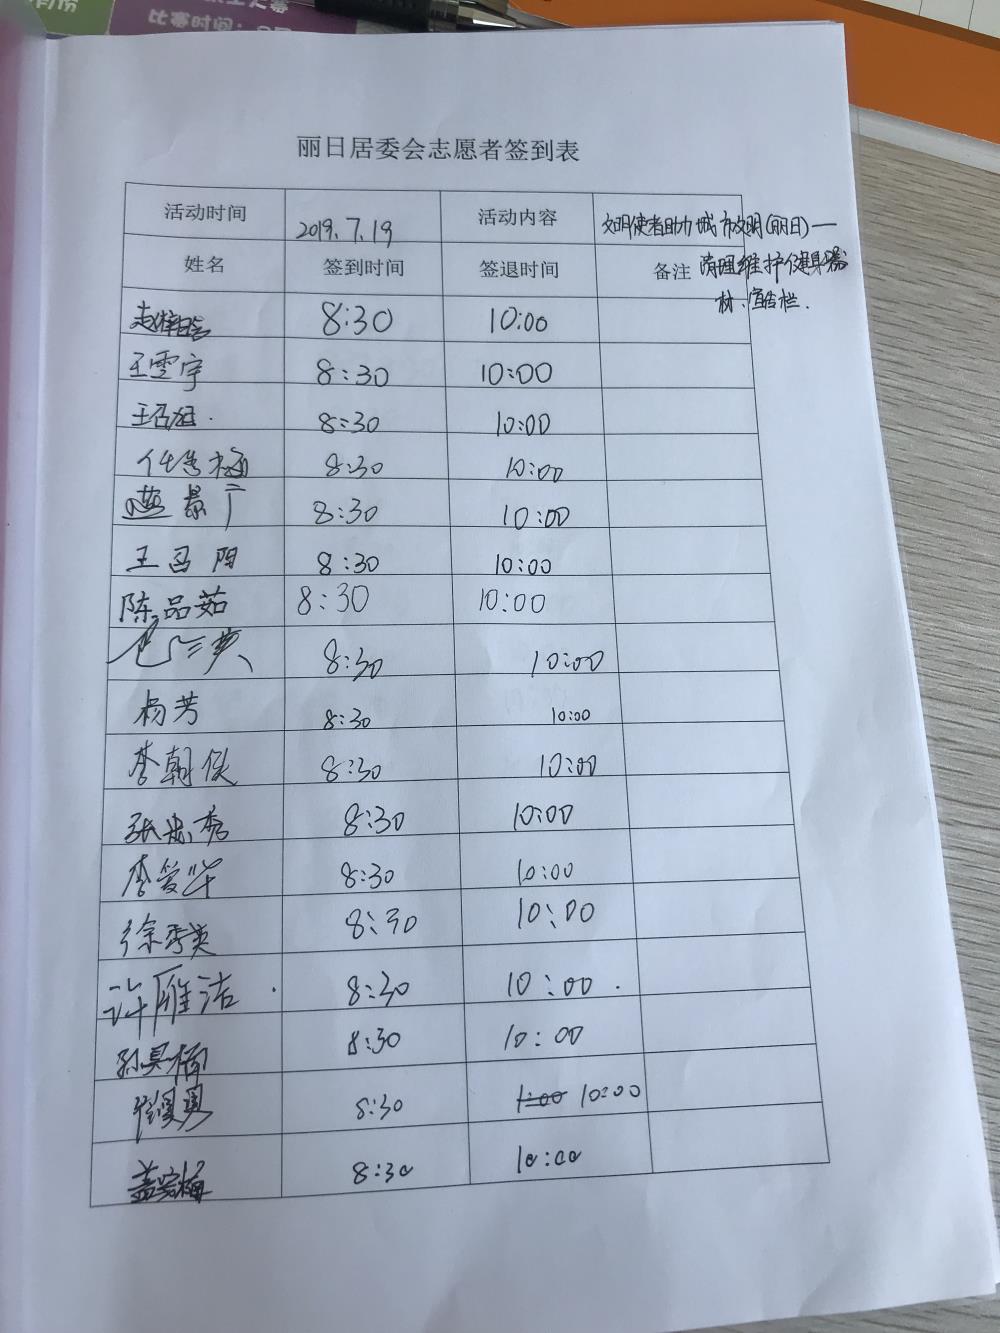 比赛时间：
丽日居委会志愿者签到表
活动时间 2019.7.19 活动内容 文明使者助力城市文明(丽日)—
清理维护健身器
材、宣告栏.
姓名 签到时间 签退时间 备注
8:30 10:00
王雪宇 8:30 10:00
8:30 10:00
8:30 10:00
燕景广 8:30 10:00
王召阳 8:30 10:00
陈品茹 8:30 10:00
8:30 10:00
杨芳 8:30 10:00
李朝侠 8:30 10:00
张忠秀 8:30 10:00
李爱华 8:30 10:00
徐秀英 8:30 10:00
许雁洁 8:30 10:00
8:30 10:00
8:30 1:00 10:00
盖宗梅 8:30 10:00